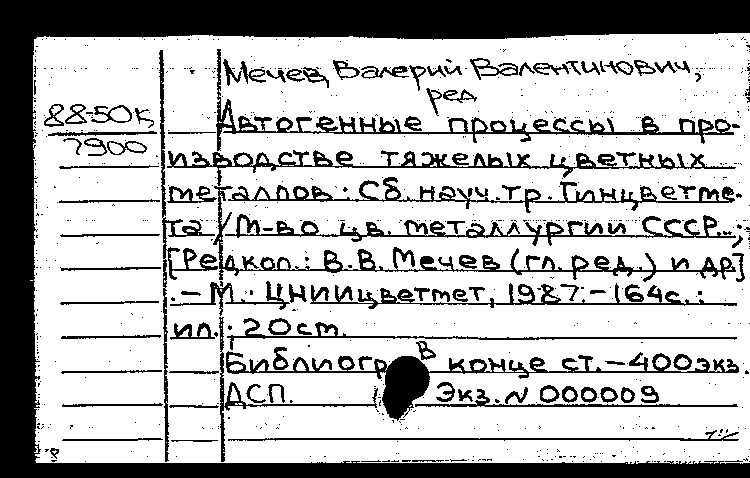 Мечев, Валерий Валентинович,
ред
88-50К
7900
Автогенные процессы в про-
изводстве тяжелых цветных
металлов: Сб. науч. тр. Гинцветме-
та / М-во цв. металлургии СССР...;
[Редкол.: В.В. Мечев (гл. ред.) и др]
.-М.: ЦНИИцветмет, 1987.-164с.:
ил.; 20 ст.
Библиогр в конце ст.-400экз.
ДСП. Экз. N 000009